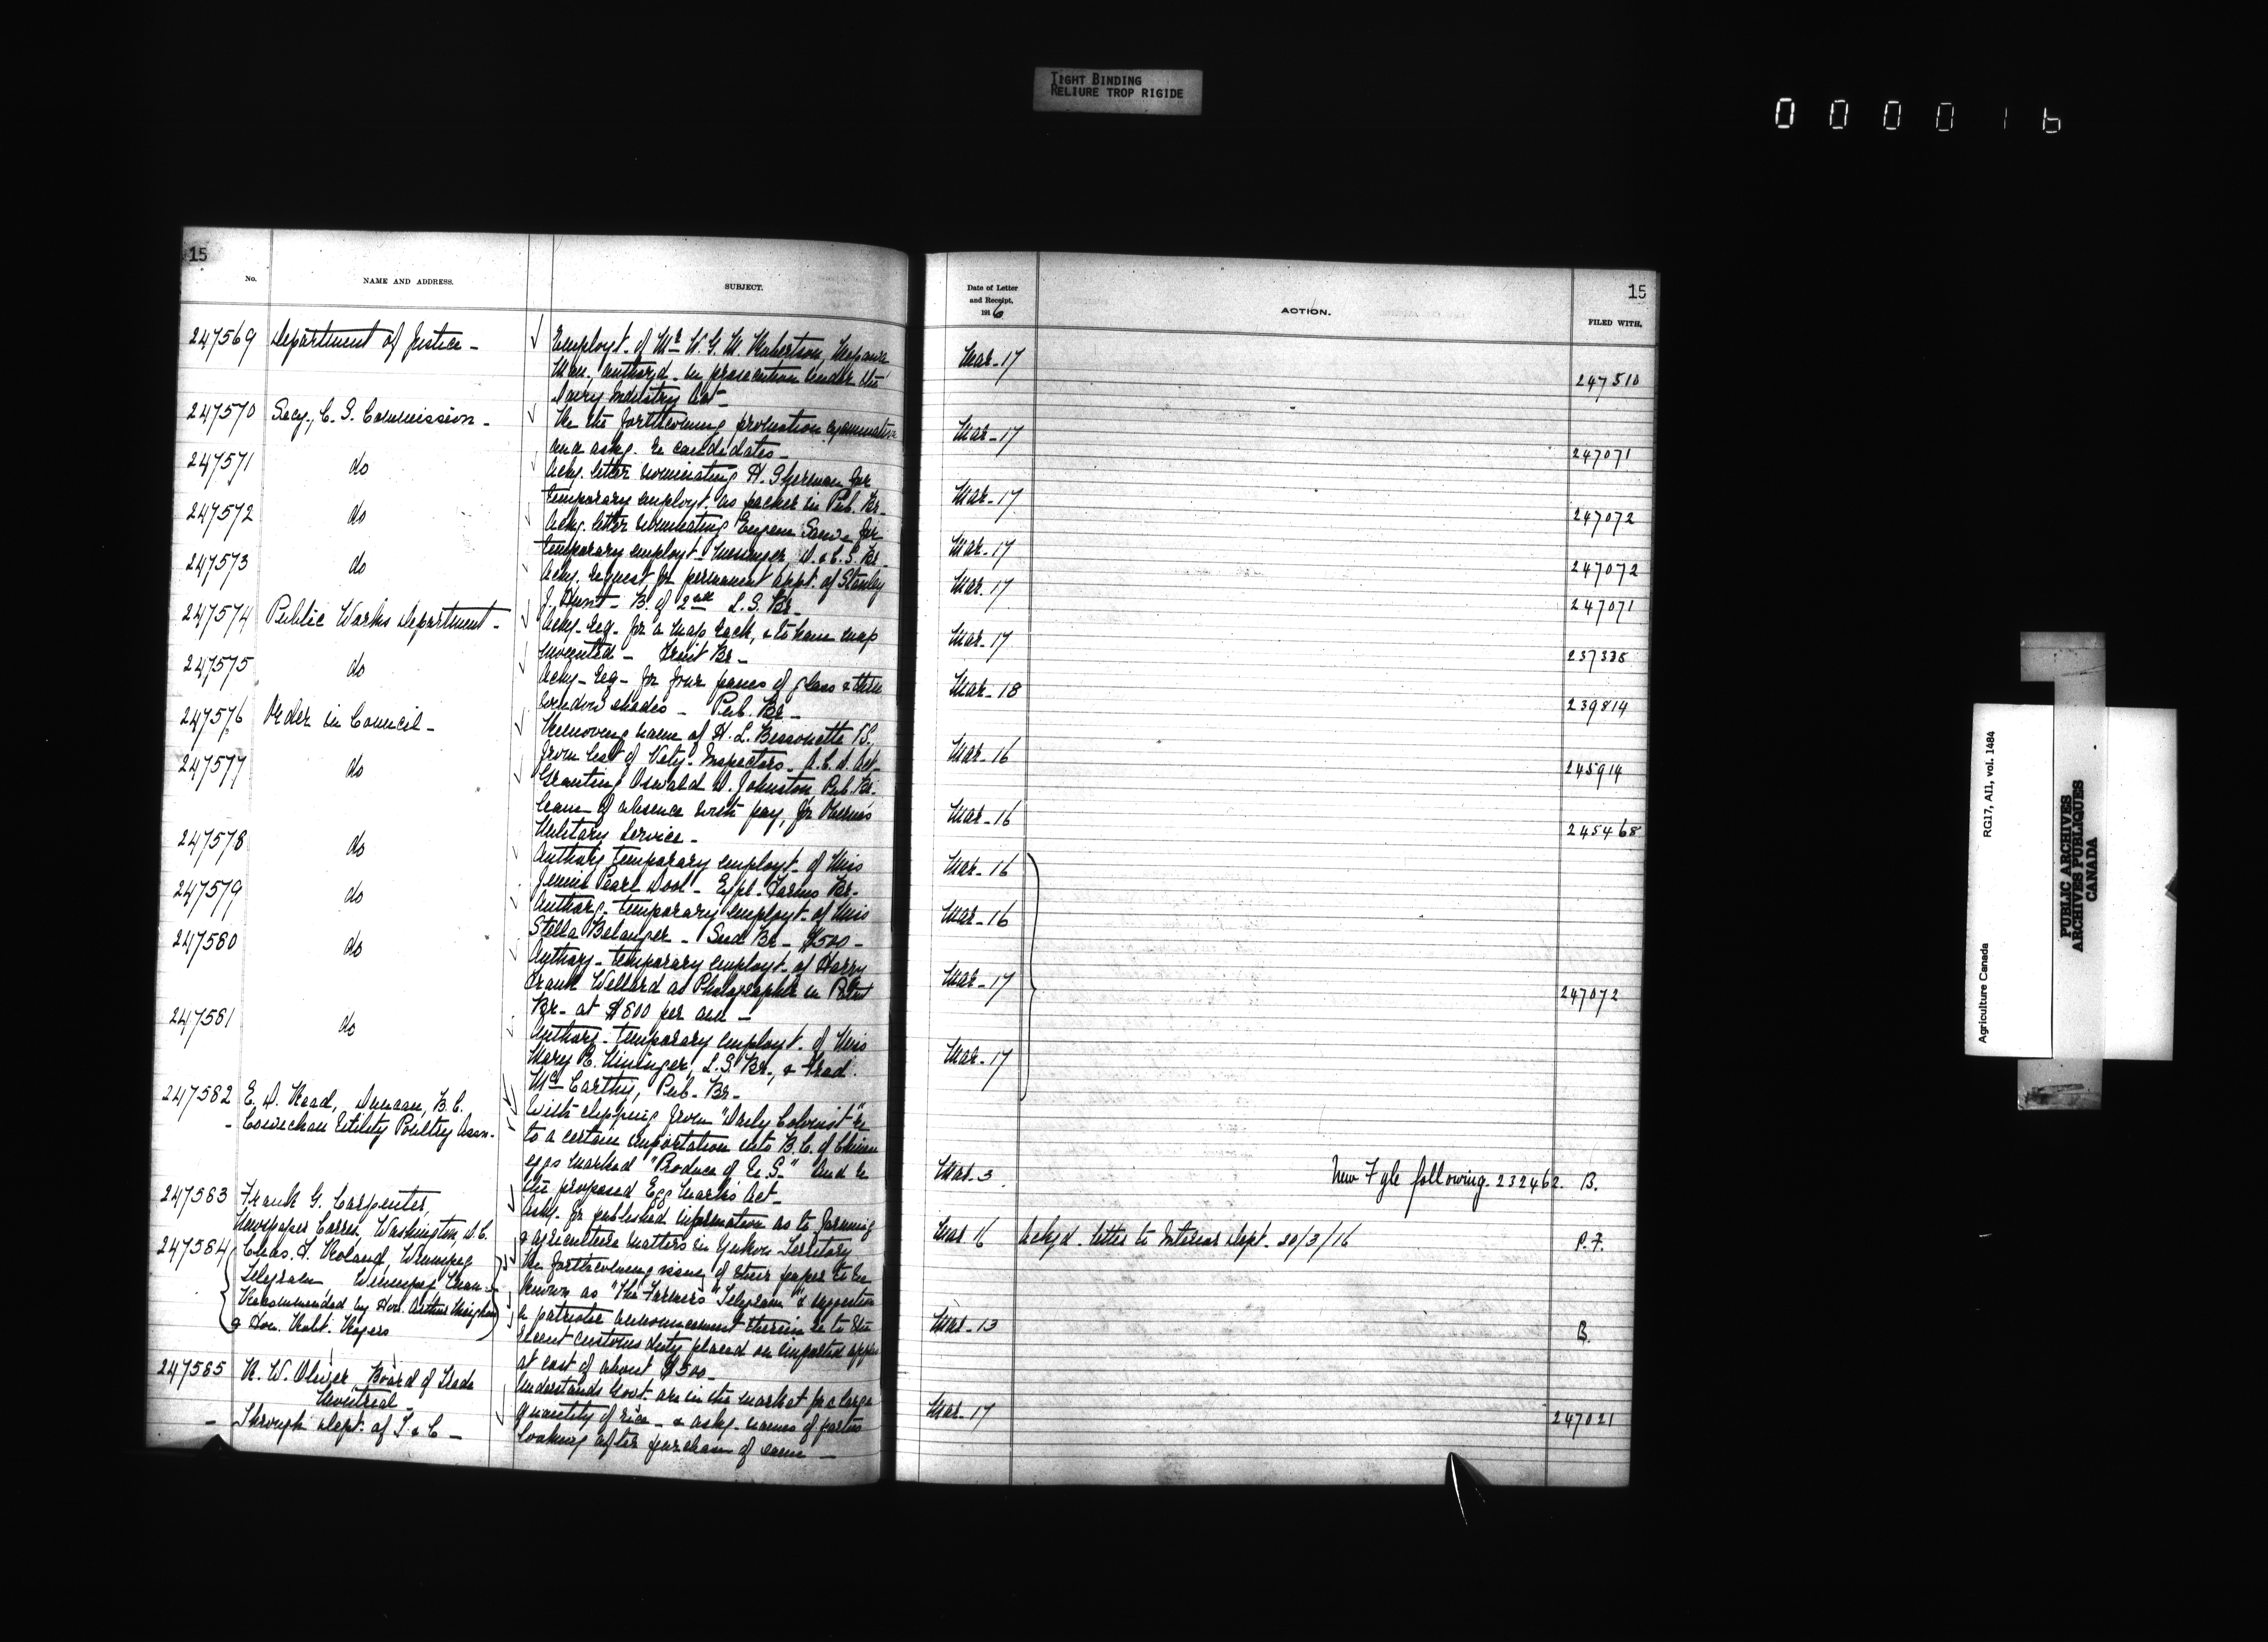 TIGHT BINDING
RELIURE TROP RIGIDE
000016
15
No.
NAME AND ADDRESS.
SUBJECT.
247569 Department of Justice -
Employt. of Mr W. G. M. Robertson,
Man. authorzd. in prosecution under the
Dairy Industry Act -
247570 Secy., C. S. Commission -
Re the forthcoming promotion examination
and askg. re candidates -
247571 do
Ackg. letter nominating H. Sherman for
temporary employt. as packer in Pub. Br.
247572 do
Ackg. letter nominating Eugene for
temporary employt. messenger D. & C. S. Br.
247573 do
Ackg. request for permanent appt. of Stanley
J. Hunt - B. of 2nd L. S. Br -
247574 Public Works Department -
Ackg. req. for a map rack, & to have map
mounted - Fruit Br -
247575 do
Ackg. req. for four panes of glass & three
window shades - Pub. Br -
247576 Order in Council -
Removing name of H. L. Bissonette V.S.
from list of Vety. Inspectors - A. C. D. Act -
247577 do
Granting Oswald D. Johnston, Pub. Br.
leave of absence with pay, for Overseas
Military Service -
247578 do
Authorg. temporary employt. of Miss
Jennie Pearl Dool - Expl. Farms Br -
247579 do
Authorg. temporary employt. of Miss
Stella Belanger - Seed Br - $500 -
247580 do
Authorg. temporary employt. of Harry
Frank Wellard as Photographer in Patent
Br - at $800 per ann -
247581 do
Authorg. temporary employt. of Miss
Mary E. Mininger, L. S. Br., & Thad.
McCarthy, Pub. Br -
247582 E. D. Read, Duncan, B. C.
- Cowichan Utility Poultry Assn -
With clipping from "Daily Colonist" re
to a certain importation into B. C. of Chinese
eggs marked "Produce of U. S." And re
the proposed Egg Marks Act -
247583 Frank G. Carpenter,
Newspaper Corres, Washington, D. C.
Askg. for published information as to farming
& agriculture matters in Yukon Territory
247584 Chas. F. Roland, Winnipeg
Telegram, Winnipeg Man -
Recommended by Hon. Arthur Meighen
& Hon. Robt. Rogers
Re forthcoming issue of their paper to be
known as "The Farmers Telegram" & suggestion
re patriotic announcement therein re to the
recent customs duty placed on imported apples
at cost of about $500 -
247585 R. W. Oliver, Board of Trade
Montreal -
- Through Dept. of T. & C -
Understands Govt. are in the market for large
quantity of rice - & askg. names of parties
looking after purchase of same -
Date of Letter
and Receipt,
1916
ACTION.
15
FILED WITH.
Mar - 17 247510
Mar - 17 247071
Mar - 17 247072
Mar - 17 247072
Mar - 17 247071
Mar - 17 237338
Mar - 18 239814
Mar - 16 245914
Mar - 16 245468
Mar - 16
Mar - 16
Mar - 17 247072
Mar - 17
Mar. 3 New Fyle following 232462. B.
Mar 16 Ackgd. letter to Interior Dept. 20/3/16 P. F.
Mar - 13 B.
Mar - 17 247021
Agriculture Canada RG17, AII, vol. 1484
PUBLIC ARCHIVES
ARCHIVES PUBLIQUES
CANADA